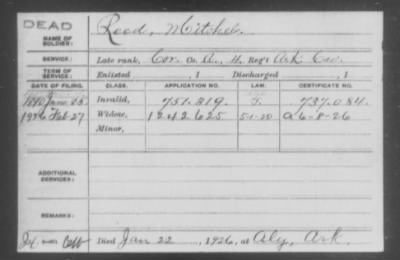 DEAD
NAME OF SOLDIER: Reed, Mitchel.
SERVICE: Late rank, Cor. Co. A, H, Reg't Ark. Cav.
TERM OF SERVICE: Enlisted , 1 Discharged , 1
DATE OF FILING. CLASS. APPLICATION NO. LAW. CERTIFICATE NO.
1890 June 25. Invalid, 751.819. 737.084.
1926 Feb-27 Widow, 1242.625 5-1-20 a 6-8-26
Minor,
ADDITIONAL SERVICES:
REMARKS:
Died Jan 22, 1926, at Aly, Ark.